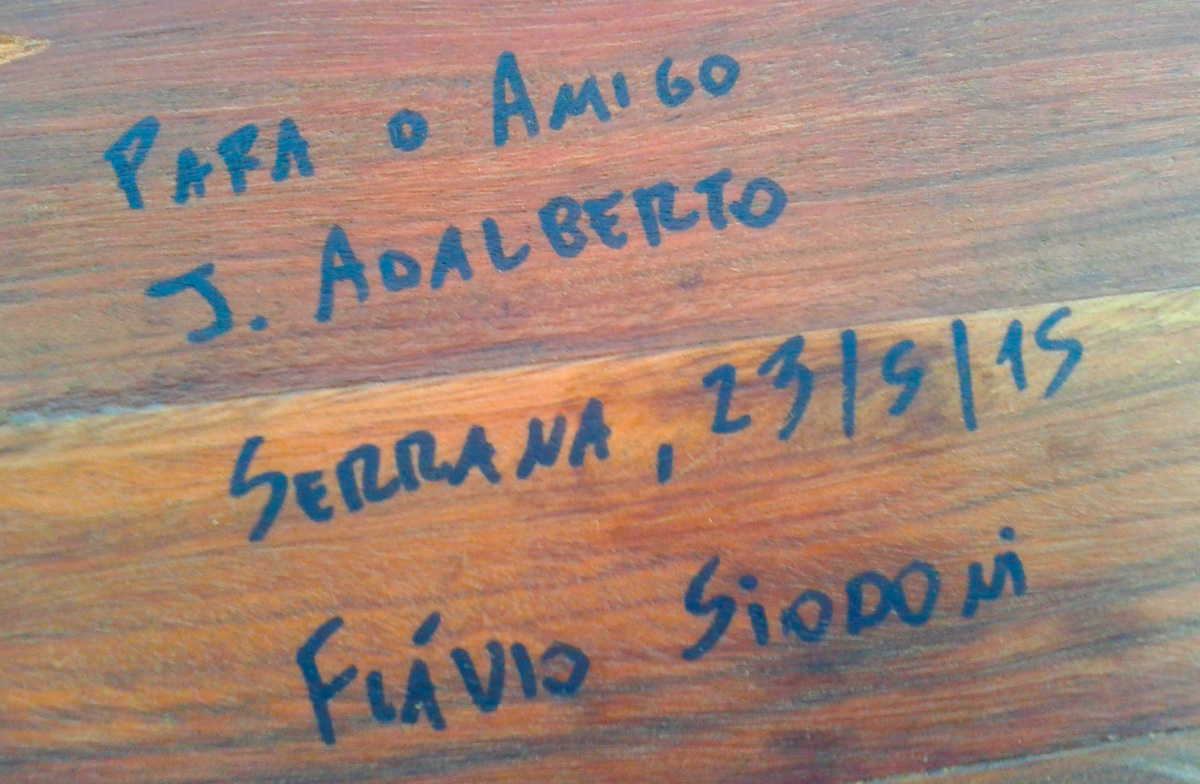 PARA O AMIGO
J. ADALBERTO
SERRANA, 23/5/15
FLÁVIO SiODONi